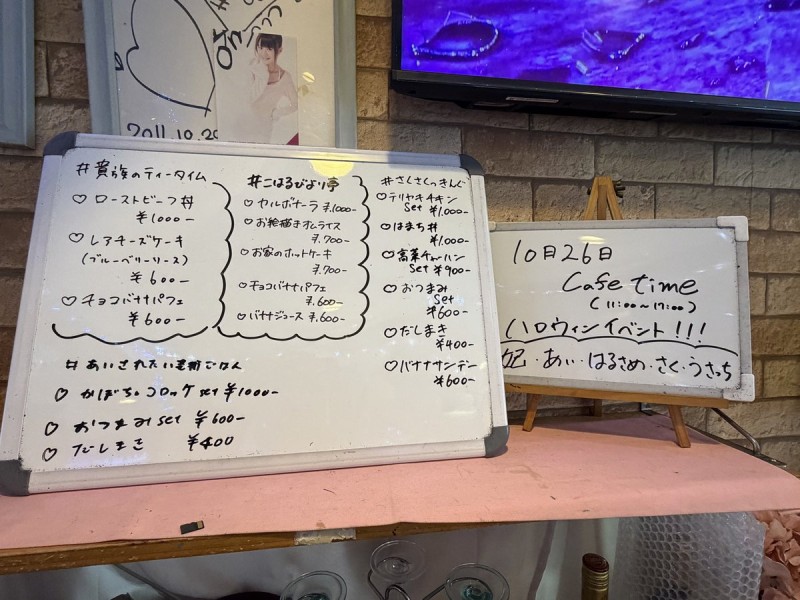 2011.10.29
#貴族のティータイム
♡ ローストビーフ丼
¥1000-
♡ レアチーズケーキ
(ブルーベリーソース)
¥600-
♡ チョコバナナパフェ
¥600-
#こはるびより亭
♡ カルボナーラ ¥.1000-
♡ お絵描きオムライス
¥.700-
♡ お家のホットケーキ
¥.700-
♡ チョコバナナパフェ
¥.600-
♡ バナナジュース ¥.600-
#さくさくっきんぐ
♡テリヤキチキン
Set ¥1.000-
♡はまち丼
¥1.000-
♡高菜チャーハン
Set ¥900-
♡おつまみ
Set
¥600-
♡だしまき
¥400-
♡バナナサンデー
¥600-
#あいされたい
ごはん
♡ かぼちゃコロッケ set ¥1000-
♡ おつまみ set ¥600-
♡ だしまき ¥400
10月26日
Cafe time
(11:00~17:00)
ハロウィンイベント!!!
妃・あい・はるさめ・さく・うさっち